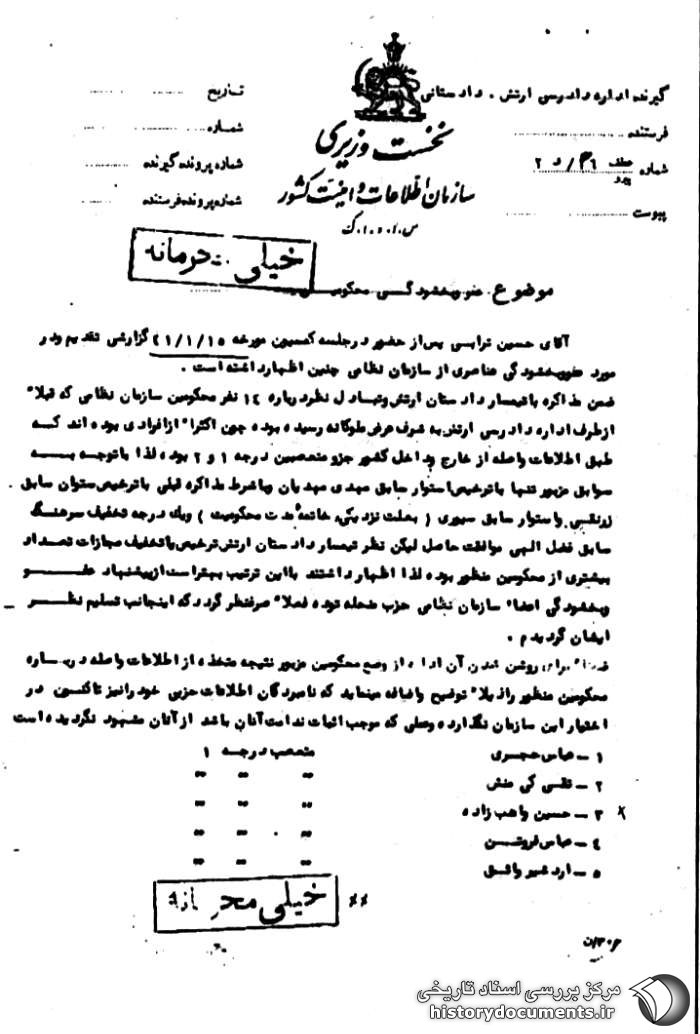 گیرنده اداره دادرسی ارتش . دادستانی
فرستنده
شماره
پیوست
نخست وزیری
سازمان اطلاعات و امنیت کشور
س.ا.و.ا.ک
تاریخ
شماره
شماره پرونده گیرنده
شماره پرونده فرستنده
خیلی محرمانه
موضوع : عفو و بخشودگی محکومین
آقای حسین ترابی پس از حضور در جلسه کمسیون مورخه ۴۱/۱/۱۵ گزارشی تقدیم و در
مورد عفو و بخشودگی عناصری از سازمان نظامی چنین اظهار داشته است .
ضمن مذاکره با تیمسار دادستان ارتش و تبادل نظر درباره ۱۴ نفر محکومین سازمان نظامی که قبلاً
از طرف اداره دادرسی ارتش به شرف عرض ملوکانه رسیده بوده چون اکثراً از افرادی بوده اند که
طبق اطلاعات واصله از خارج و داخل کشور جزو متعصبین درجه ۱ و ۲ بوده لذا با توجه به
سوابق مزبور تنها با ترخیص استوار سابق مهدی میدیان و باشرط مذاکره قبلی با ترخیص ستوان سابق
زونقسی و استوار سابق سپوری ( بعلت نزدیکی خاتمه مدت محکومیت ) و یک درجه تخفیف سرهنگ
سابق فضل الهی موافقت حاصل لیکن نظر تیمسار دادستان ارتش ترخیص یا تخفیف مجازات تعداد
بیشتری از محکومین منظور بوده لذا اظهار داشتند با این ترتیب بهتر است از پیشنهاد عفو
و بخشودگی اعضاء سازمان نظامی حزب منحله توده فعلاً صرفنظر گردد که اینجانب تسلیم نظر
ایشان گردیدم .
برای روشن شدن آن اداره از وضع محکومین مزبور نتیجه متخذه از اطلاعات واصله درباره
محکومین منظور را ذیلاً توضیح و اضافه مینماید که نامبردگان اطلاعات حزبی خود را نیز تاکنون در
اختیار این سازمان نگذارده و عملی که موجب اثبات ندامت آنان باشد از آنان مشهود نگردیده است
۱ – عباس حجری متعصب درجه ۱
۲ – تقی کی منش " " "
× ۳ – حسین واهب زاده " " "
۴ – عباس فروتن " " "
۵ – اردشیر واثق " " "
خیلی محرمانه
××
مرکز بررسی اسناد تاریخی
historydocuments.ir